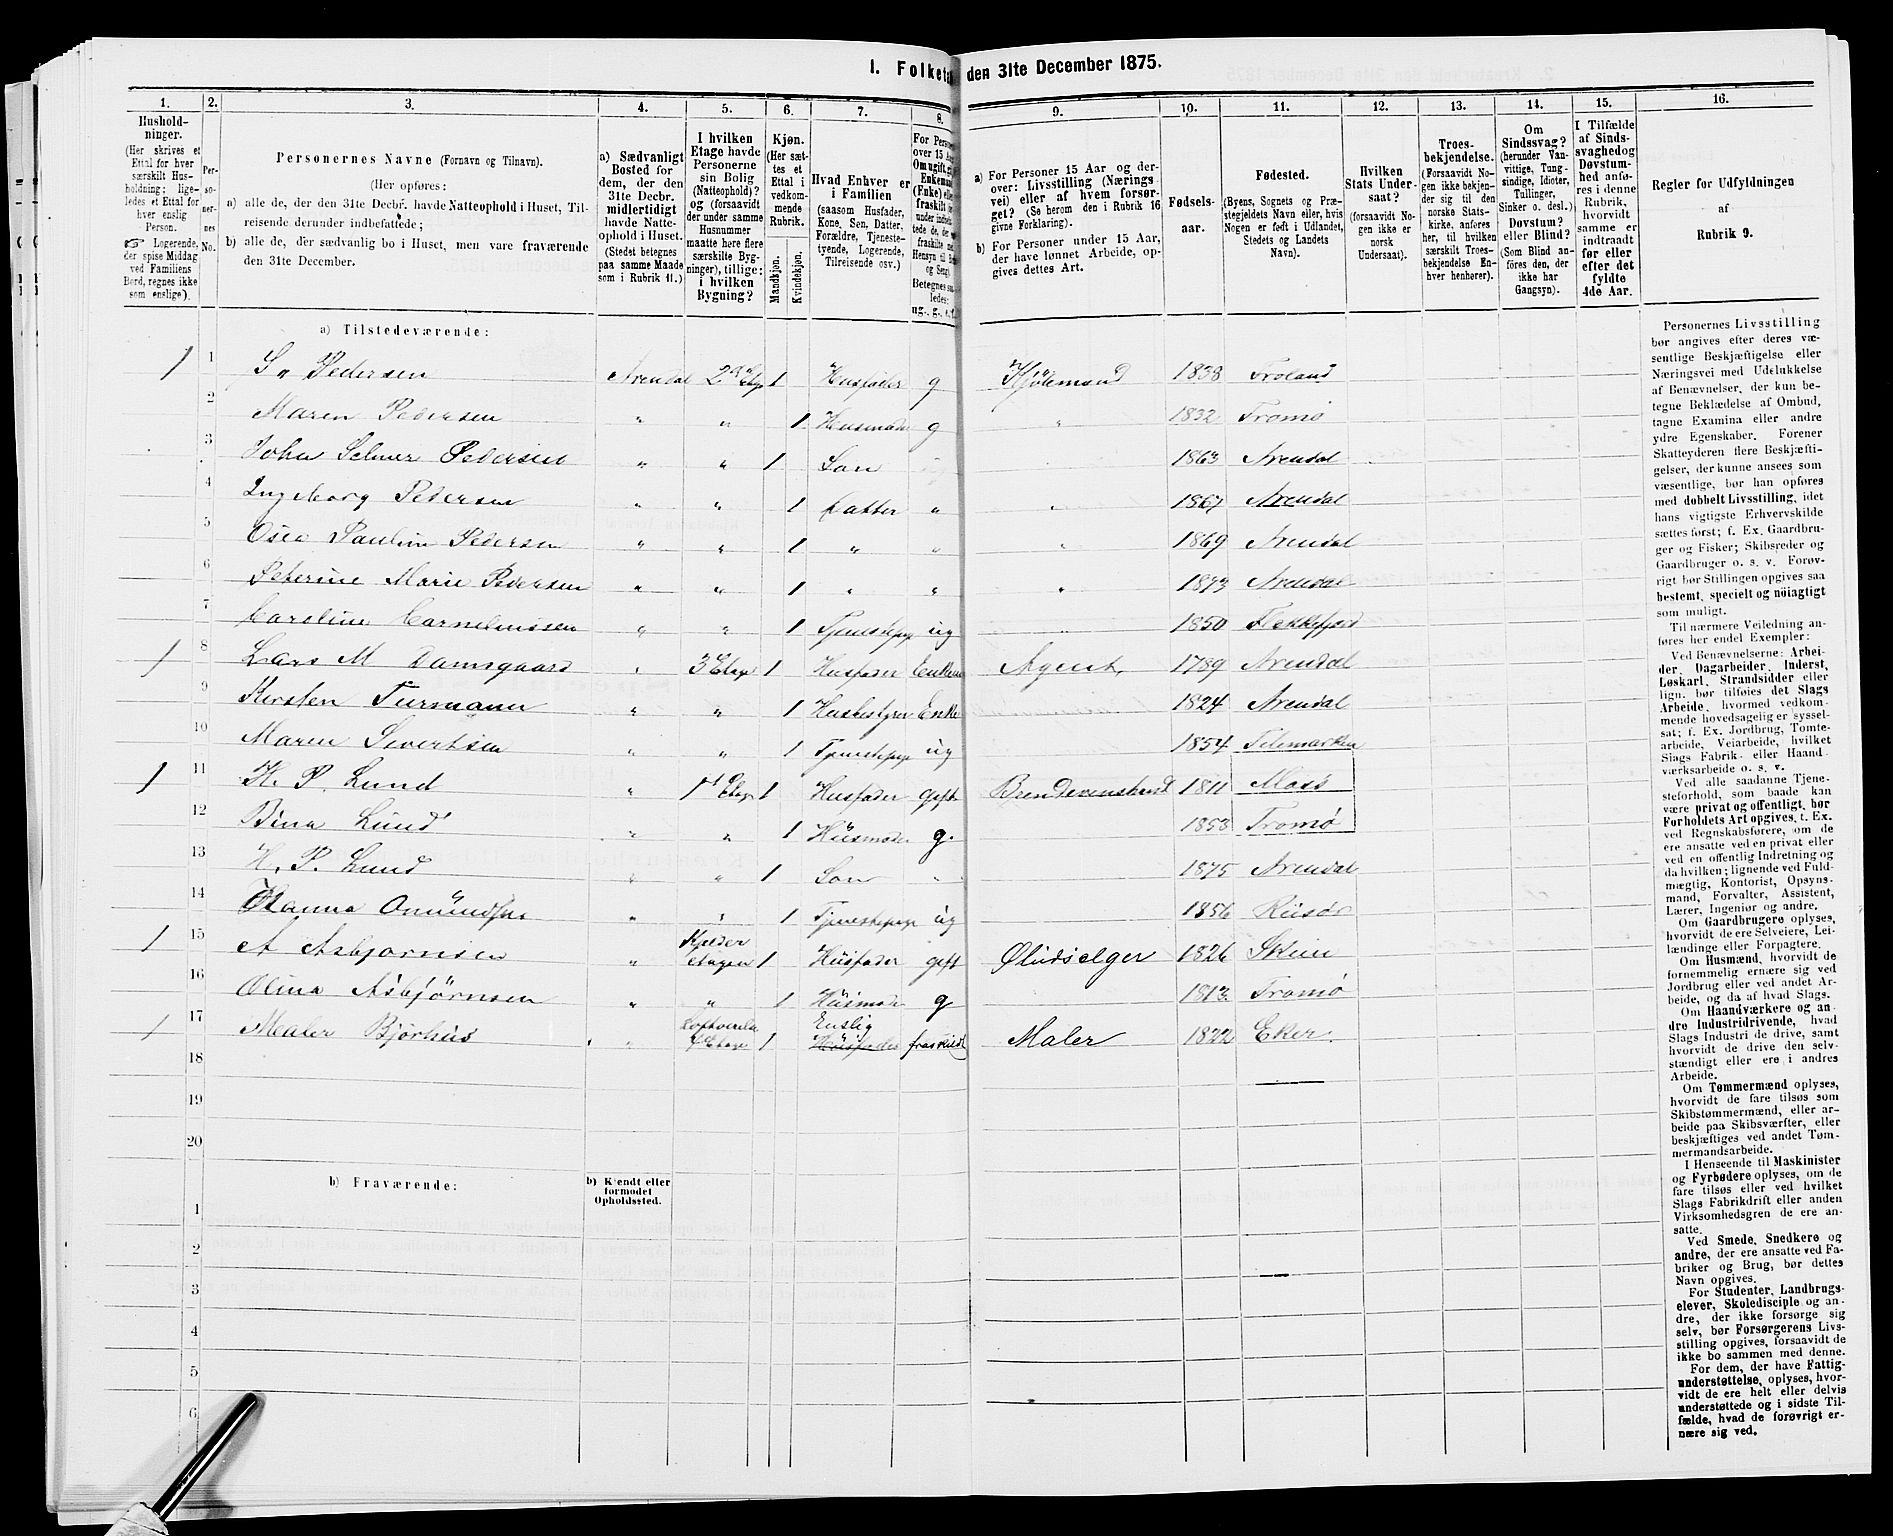 1. Folketæ den 31te December 1875.
1. 2. 3. 4. 5. 6. 7. 8. 9. 10. 11. 12. 13. 14. 15. 16.
Hushold-
ninger.
(Her skrives et
Ettal for hver
særskilt Hus-
holdning; lige-
ledes et Ettal for
hver enslig
Person.
☞ Logerende,
der spise Middag
ved Familiens
Bord, regnes ikke
som enslige).
Per-
so-
ner-
nes
No.
Personernes Navne (Fornavn og Tilnavn).
(Her opføres:
a) alle de, der den 31te Decbr. havde Natteophold i Huset, Til-
reisende derunder indbefattede;
b) alle de, der sædvanlig bo i Huset, men vare fraværende
den 31te December.
a) Sædvanligt
Bosted for
dem, der den
31te Decbr.
midlertidigt
havde Natte-
ophold i Huset.
(Stedet betegnes
paa samme Maade
som i Rubrik 11.)
I hvilken
Etage havde
Personerne
sin Bolig
(Natteophold)?
og (forsaavidt
der under samme
Husnummer
maatte høre flere
særskilte Byg-
ninger), tillige:
i hvilken
Bygning?
Kjøn.
(Her sæt-
tes et
Ettal i
vedkom-
mende
Rubrik.
Mandkjøn.
Kvindekjøn.
Hvad Enhver er
i Familien
(saasom Husfader,
Kone, Søn, Datter,
Forældre, Tjeneste-
tyende, Logerende,
Tilreisende osv.)
For Person
over 15 Aar
Om ugift, g
Enkeman
(Enke) elle
fraskilt
Betegnes saa
ledes:
ug., g., e., f.
a) For Personer 15 Aar og der-
over: Livsstilling (Nærings
vei) eller af hvem forsør-
get? (Se herom den i Rubrik 16
givne Forklaring).
b) For Personer under 15 Aar,
der have lønnet Arbeide, op-
gives dettes Art.
Fødsels-
aar.
Fødested.
(Byens, Sognets og Præ-
stegjeldets Navn eller, hvis
Nogen er født i Udlandet,
Stedets og Landets
Navn).
Hvilken
Stats Under-
saat?
(forsaavidt No-
gen ikke er
norsk
Undersaat).
Troes-
bekjendelse.
(Forsaavidt No-
gen ikke bekjen-
der sig til den
norske Stats-
kirke, anføres
her, til hvilken
særskilt Troes-
bekjendelse En-
hver henhører).
Om
Sindssvag?
(herunder Van-
vittige, Tung-
sindige, Idioter,
Tullinger,
Sinker o. desl.)
Døvstum?
eller Blind?
(Som Blind an-
føres den, der
ikke har
Gangsyn).
I Tilfælde
af Sinds-
svaghed og
Døvstum-
hed anfø-
res i denne
Rubrik,
hvorvidt
samme er
indtraadt
før eller
efter det
fyldte
4de Aar.
Regler for Udfyldningen
af
Rubrik 9.
a) Tilstedeværende:
1 1 S. Pedersen Arendal 2den Etage 1 Husfader g Kjølemand 1838 Froland
2 Maren Pedersen " " 1 Husmoder g " 1832 Tromø
3 John Selmer Pedersen " " 1 Søn 1863 Arendal
4 Ingeborg Pedersen " " 1 Datter " " 1867 Arendal
5 Osea Pauline Pedersen " " 1 " " " 1869 Arendal
6 Peterine Marie Pedersen " " 1 " " " 1873 Arendal
7 Caroline Corneliussen " " 1 Tjenestepige ug " 1850 Flekkefjord
1 8 Lars M Damsgaard " 3 Etage 1 Husfader Enkem Agent, 1789 Arendal
9 Kirsten Furmann " " 1 Husbestyrer Enke 1824 Arendal
10 Maren Sivertsen " " 1 Tjenestepige ug 1854 Telemarken
1 11 H. P. Lund " 1st Etage 1 Husfader gift 1811 Moss
12 Bina Lund " " 1 Husmoder g. 1853 Tromø
13 H. P. Lund " " 1 Søn " 1875 Arendal
14 Hanna Omundsen " " 1 Tjenestepige ug 1856 Risør
1 15 A Asbjørnsen " Kjelder etagen 1 Husfader gift Øludselger 1826 Skien
16 Olina Asbjørnsen " " 1 Husmoder g 1813 Tromø
1 17 Maler Bjørhus " Etage 1 Enslig Husfader fraskildt Maler 1822 Eker.
18
19
20
b) Fraværende:
b) Kjendt eller
formodet
Opholdssted.
1
2
3
4
5
6
Personernes Livsstilling
bør angives efter deres væ-
sentlige Beskjæftigelse eller
Næringsvei med Udelukkelse
af Benævnelser, der kun be-
tegne Beklædelse af Ombud,
tagne Examina eller andre
ydre Egenskaber. Forener
Skatteyderen flere Beskjæfti-
gelser, der kunne ansees som
væsentlige, bør han opføres
med dobbelt Livsstilling, idet
hans vigtigste Erhvervskilde
sættes først; f. Ex. Gaardbru-
ger og Fisker; Skibsreder og
Gaardbruger o. s. v. Forøv-
rigt bør Stillingen opgives saa
bestemt, specielt og nøiagtigt
som muligt.
Til nærmere Veiledning an-
føres her endel Exempler:
Ved Benævnelserne: Arbei-
der, Dagarbeider, Inderst,
Løskarl, Strandsidder eller
lign. bør tilføies det Slags
Arbeide, hvormed vedkom-
mende hovedsagelig er syssel-
sat; f. Ex. Jordbrug, Tomte-
arbeide, Veiarbeide, hvilket
Slags Fabrik- eller Haand-
værksarbeide o. s. v.
Ved alle saadanne Tjene-
steforhold, som baade kan
være privat og offentligt, bør
Forholdets Art opgives, t. Ex.
ved Regnskabsførere, om de
ere ansatte ved en privat eller
ved en offentlig Indretning og
da hvilken; lignende ved Fuld-
mægtig, Kontorist, Opsyns-
mand, Forvalter, Assistent,
Lærer, Ingeniør og andre.
Om Gaardbrugere oplyses,
hvorvidt de ere Selveiere, Lei-
lændinge eller Forpagtere.
Om Husmænd, hvorvidt de
fornemmelig ernære sig ved
Jordbrug eller ved andet Ar-
beide, og da af hvad Slags.
Om Haandværkere og an-
dre Industridrivende, hvad
Slags Industri de drive, samt
hvorvidt de drive den selv-
stændigt eller ere i andres
Arbeide.
Om Tømmermænd oplyses,
hvorvidt de fare tilsøs som
Skibstømmermænd, eller ar-
beide paa Skibsværfter, eller
beskjæftiges ved andet Tøm-
mermandsarbeide.
I Henseende til Maskinister
og Fyrbødere oplyses, om de
fare tilsøs eller ved hvilket
Slags Fabrikdrift eller anden
Virksomhedsgren de ere an-
satte.
Ved Smede, Snedkere og
andre, der ere ansatte ved Fa-
briker og Brug, bør dettes
Navn opgives.
For Studenter, Landbrugs-
elever, Skoledisciple og an-
dre, der ikke forsørge sig
selv, bør Forsørgerens Livs-
stilling opgives, forsaavidt de
ikke bo sammen med denne.
For dem, der have Fattig-
understøttelse, oplyses, hvor-
vidt de ere helt eller delvis
understøttede og i sidste Til-
fælde, hvad de forøvrigt er-
nære sig ved.